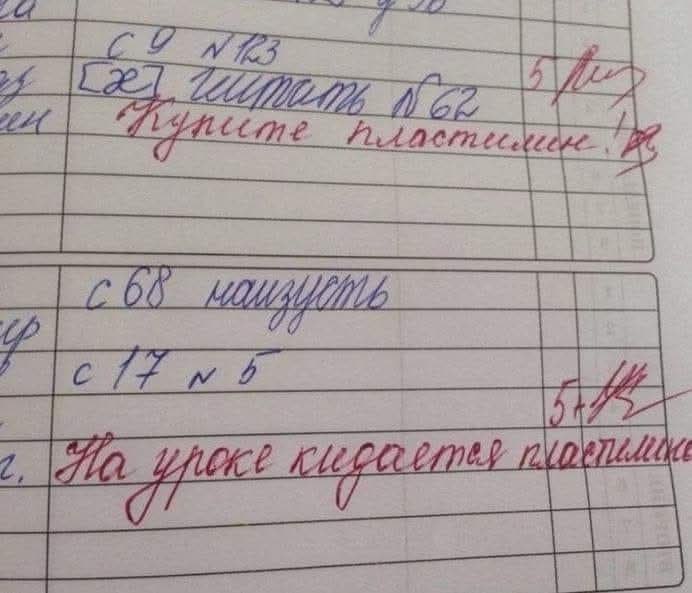 с 9 №123
[х] читать №62 5
Купите пластилин!
с 68 наизусть
с 17 № 5
5+
г. На уроке кидается пластилино